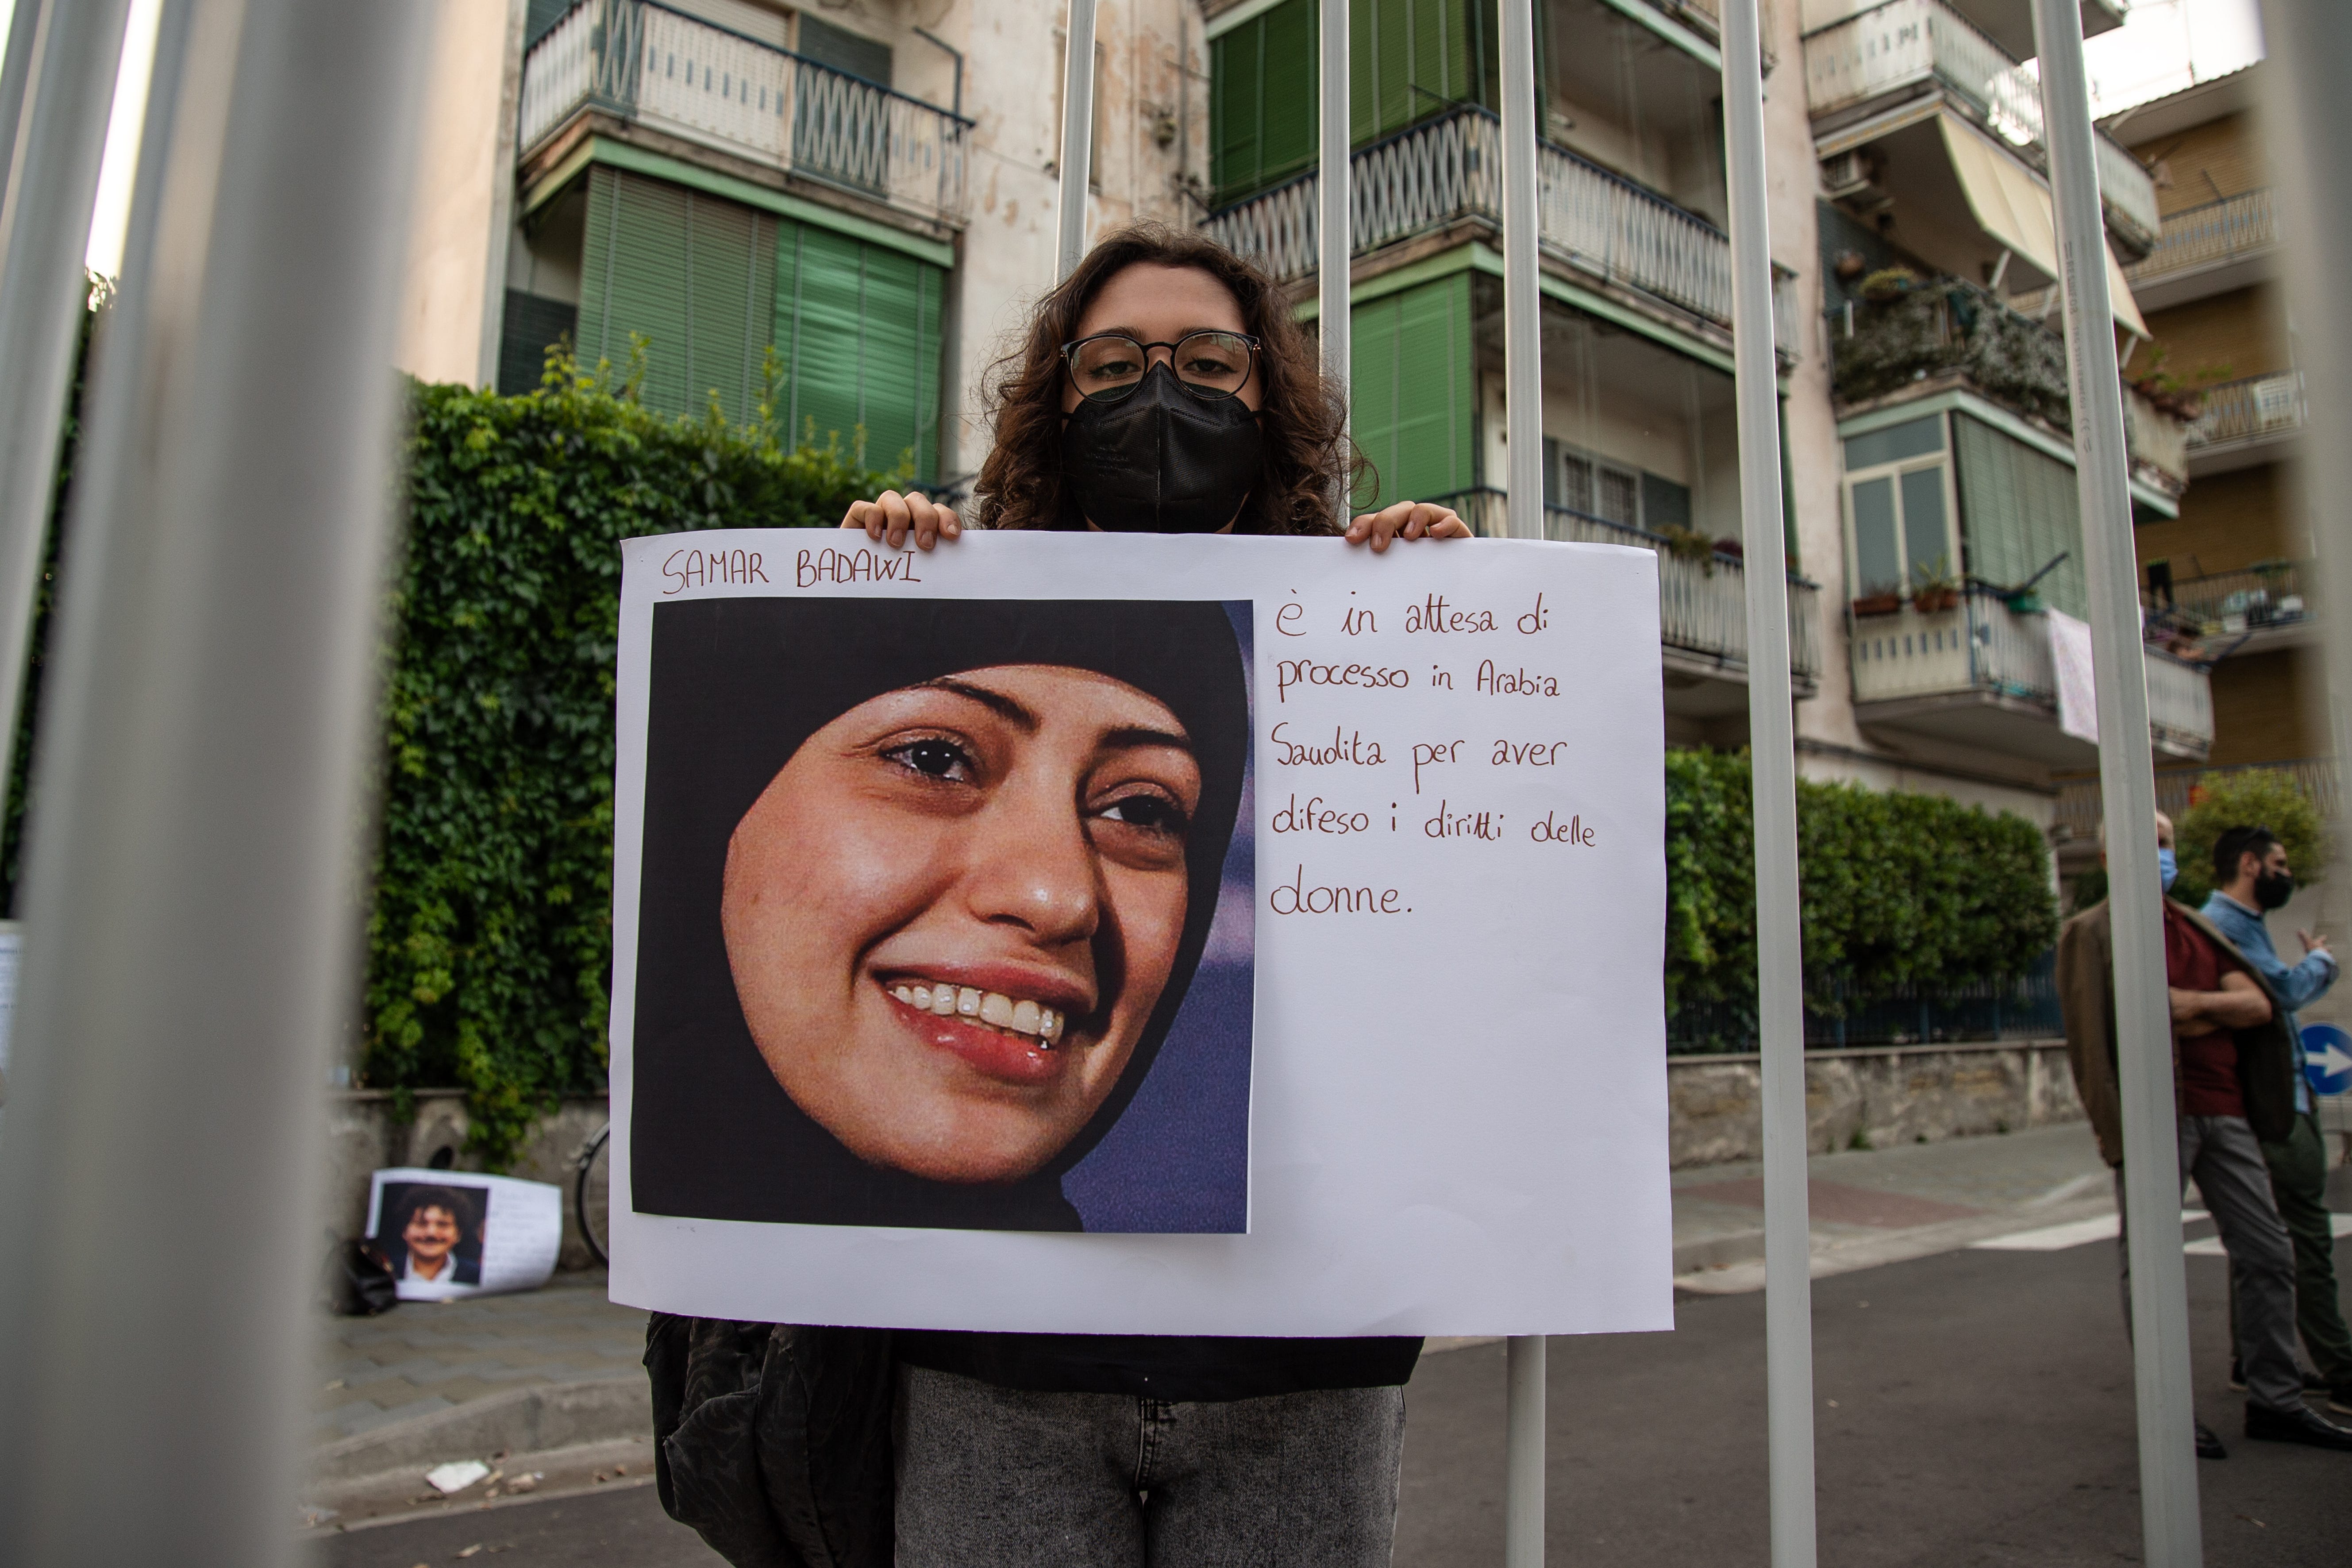 SAMAR BADAWI
è in attesa di
processo in Arabia
Saudita per aver
difeso i diritti delle
donne.